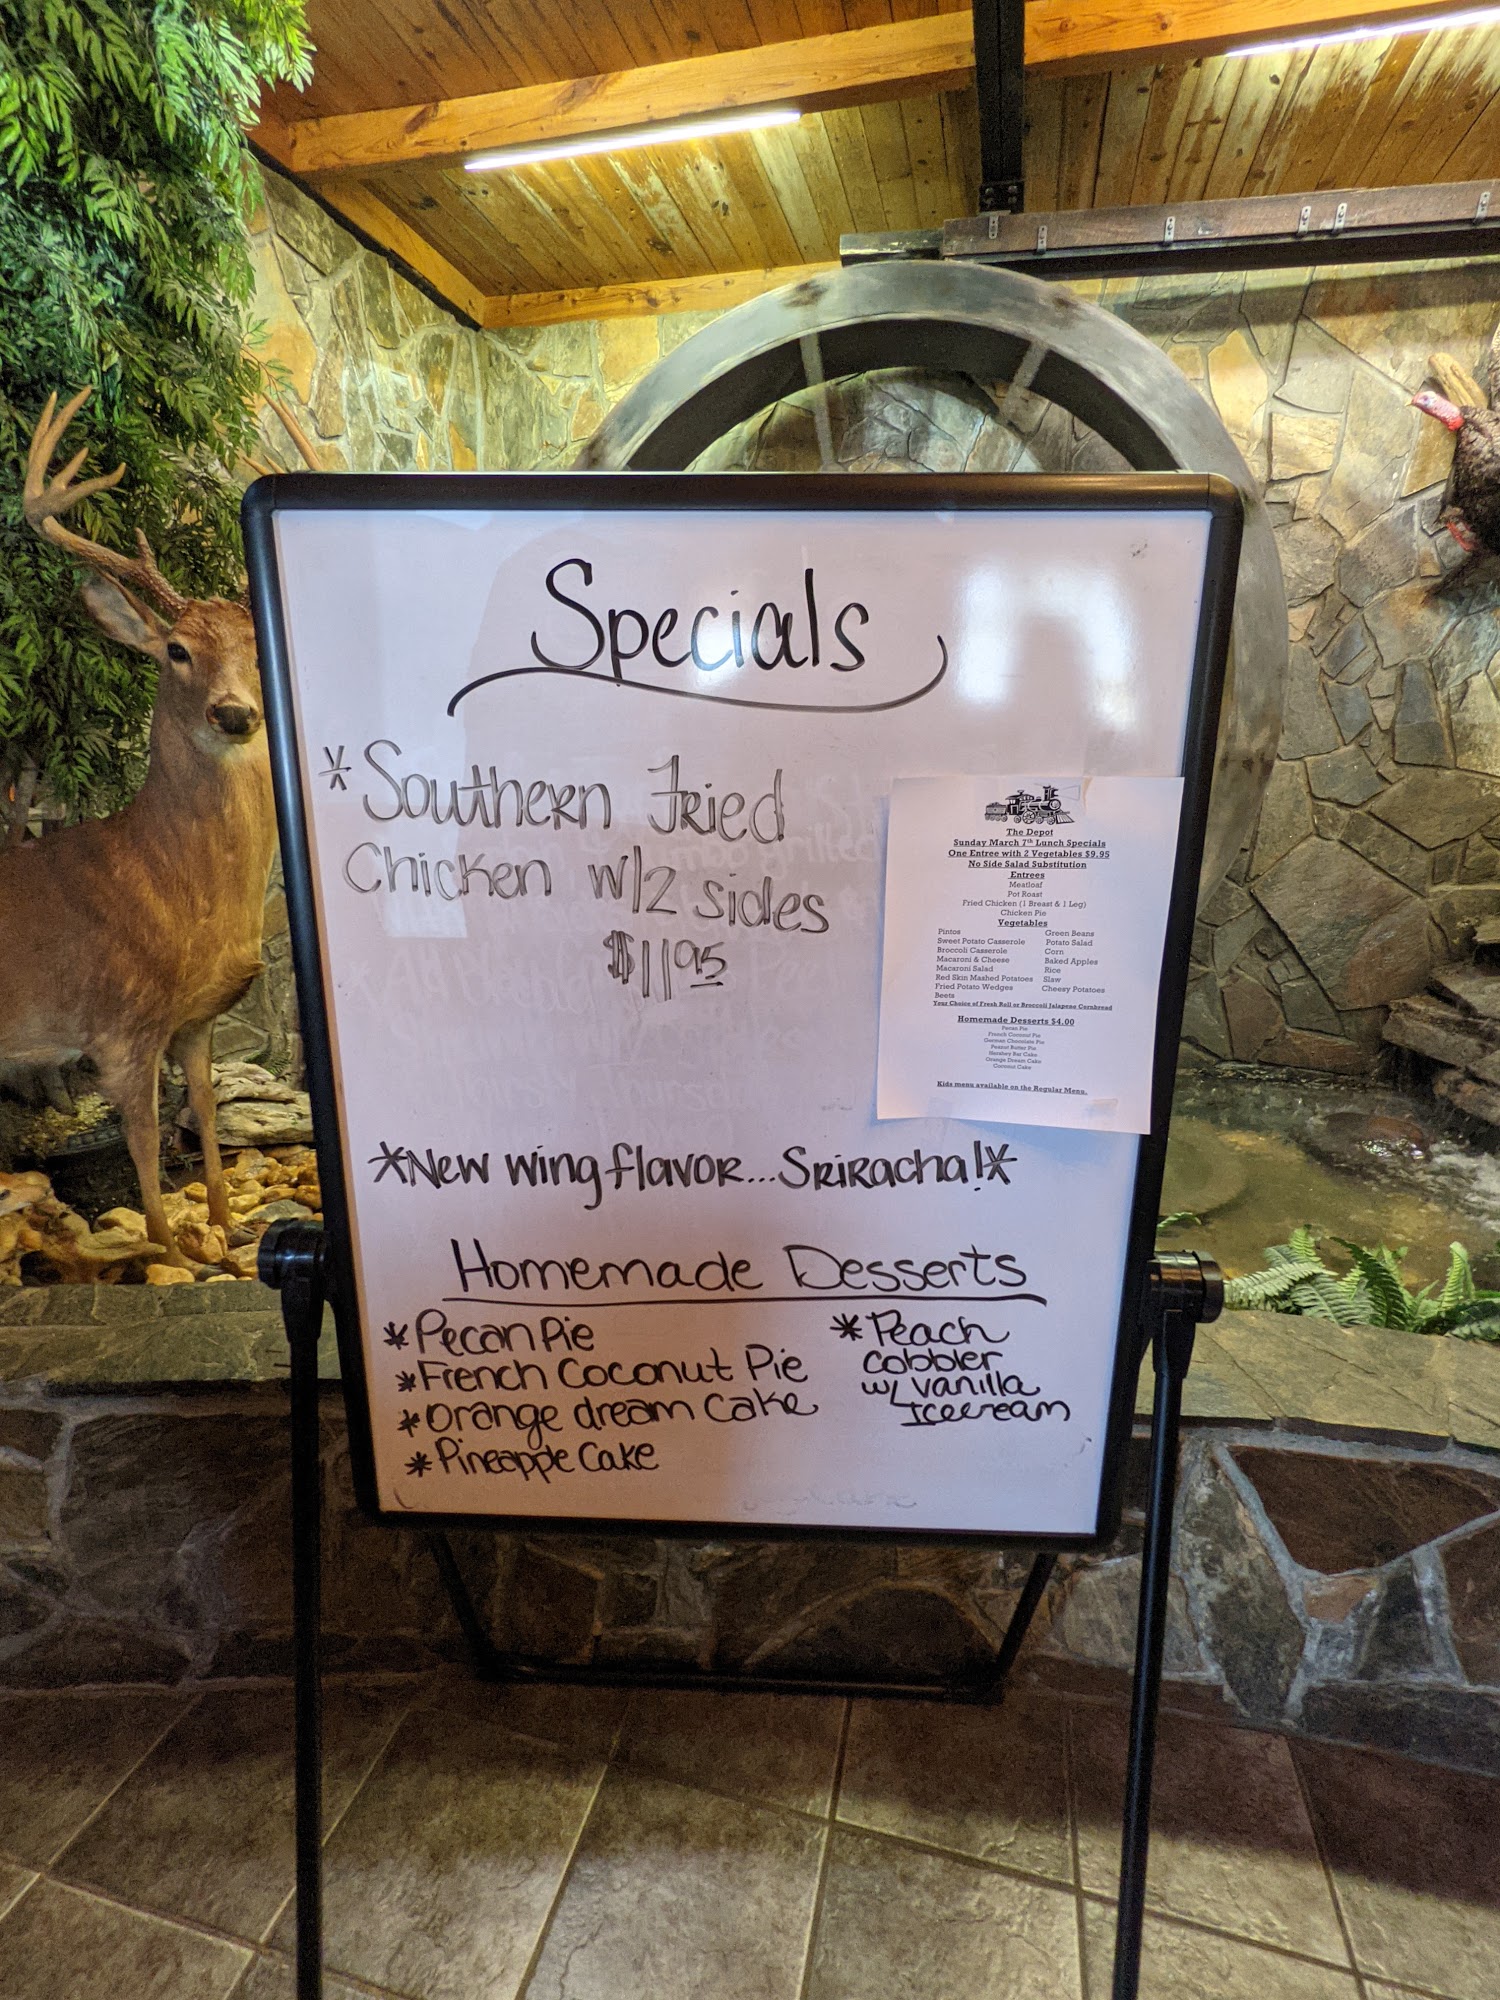 Specials
*Southern Fried
Chicken w/2 sides
$11.95
The Depot
Sunday March 7th Lunch Specials
One Entree with 2 Vegetables $9.95
No Side Salad Substitution
Entrees
Meatloaf
Pot Roast
Fried Chicken (1 Breast & 1 Leg)
Chicken Pie
Vegetables
Pintos Green Beans
Sweet Potato Casserole Potato Salad
Broccoli Casserole Corn
Macaroni & Cheese Baked Apples
Macaroni Salad Rice
Red Skin Mashed Potatoes Slaw
Fried Potato Wedges Cheesy Potatoes
Beets
Your Choice of Fresh Roll or Broccoli Jalapeno Cornbread
Homemade Desserts $4.00
Pecan Pie
French Coconut Pie
German Chocolate Pie
Peanut Butter Pie
Hershey Bar Cake
Orange Dream Cake
Coconut Cake
Kids menu available on the Regular Menu.
*New wing flavor...Sriracha!*
Homemade Desserts
*Pecan Pie
*French Coconut Pie
*Orange dream Cake
*Pineapple Cake
*Peach
cobbler
w/ vanilla
Icecream